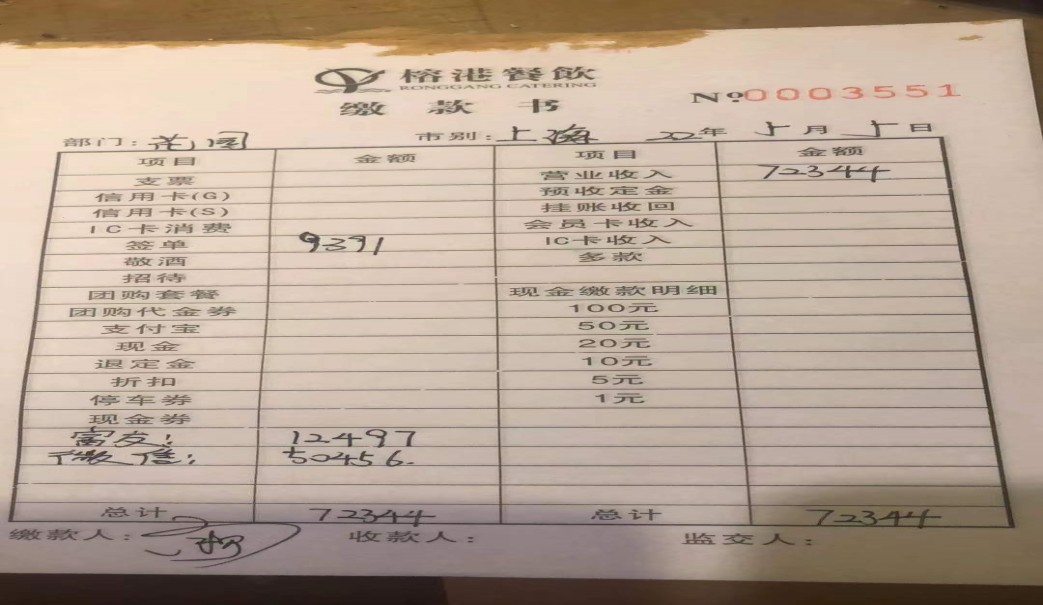 榕港餐飲
RONGGANG CATERING
缴款书
Nº0003551
部门: 花园 市别: 上海 22年 5月 5日
项目 金额 项目 金额
支票 营业收入 72344
信用卡(G) 预收定金
信用卡(S) 挂账收回
IC卡消费 会员卡收入
签单 9391 IC卡收入
敬酒 多款
招待
团购套餐 现金缴款明细
团购代金券 100元
支付宝 50元
现金 20元
退定金 10元
折扣 5元
停车券 1元
现金券
富友: 12497
微信: 50456.
总计 72344 总计 72344
缴款人: 收款人: 监交人: